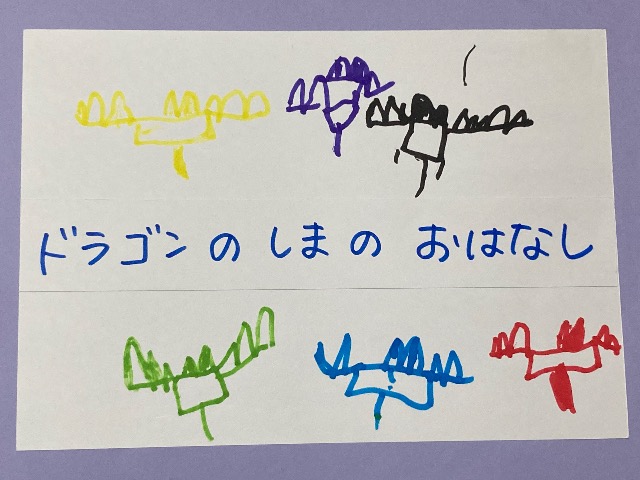 ドラゴンの しまの おはなし